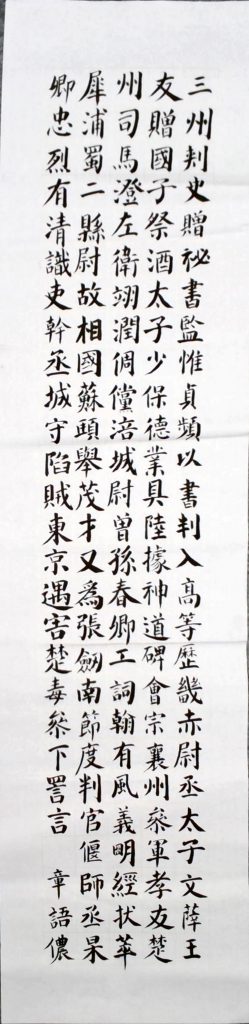 三州刾史贈祕書監惟貞頻以書判入高等歷畿赤尉丞太子文薛王
友贈國子祭酒太子少保德業具陸據神道碑會宗襄州叅軍孝友楚
州司馬澄左衛翊潤倜儻涪城尉曾孫春卿工詞翰有風義明經状苹
犀浦蜀二縣尉故相國蘇頲舉茂才又爲張劒南節度判官偃師丞杲
卿忠烈有清識吏幹丞城守陷賊東京遇害楚毒叅下詈言 章語儂